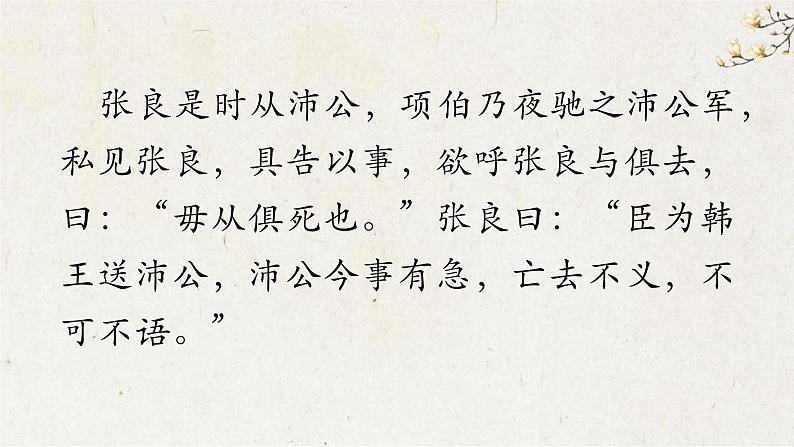 张良是时从沛公，项伯乃夜驰之沛公军，
私见张良，具告以事，欲呼张良与俱去，
曰：“毋从俱死也。”张良曰：“臣为韩
王送沛公，沛公今事有急，亡去不义，不
可不语。”